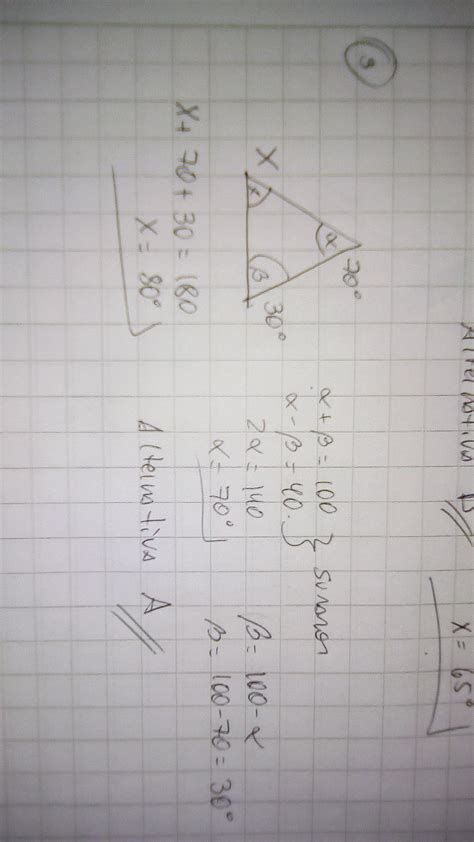 Alternativa B
x = 65°
3
70°
α
X
x
β
30°
α + β = 100
α - β = 40.
} sumar
2α = 140
α = 70°
β = 100 - α
β = 100 - 70 = 30°
X + 70 + 30 = 180
X = 80°
Alternativa A